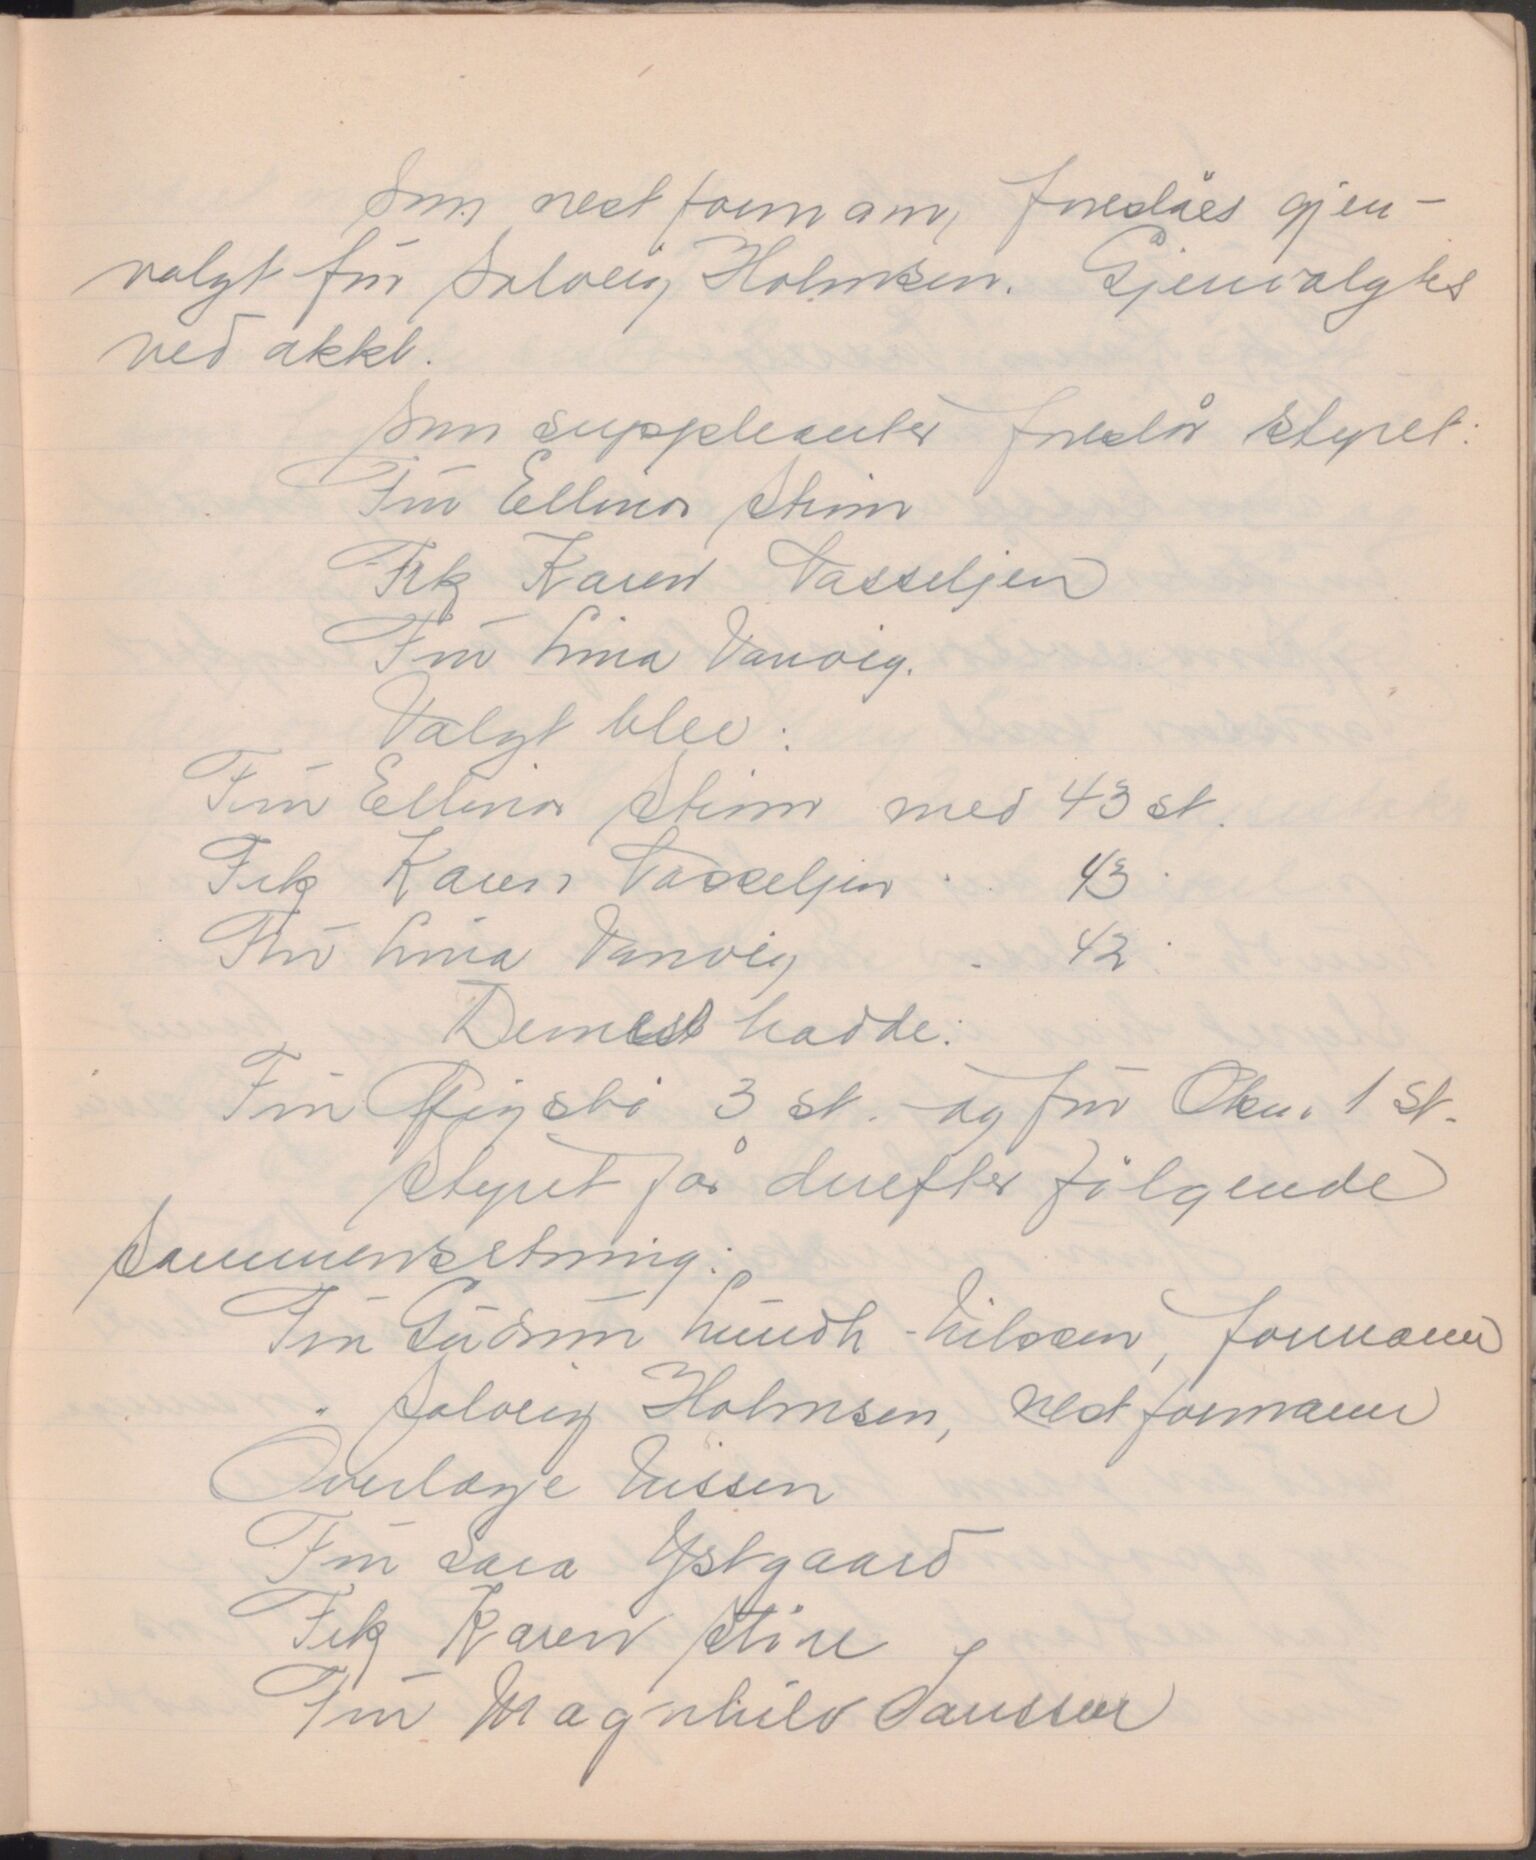 Som nestformann foreslåes gjen-
valgt fru Solveig Holmsen. Gjenvalgtes
ved akkl.
Som suppleanter foreslår styret:
Fru Ellinor Strøm
Frk Karen Vasseljen
Fru Lina Vanvig.
Valgt blev:
Fru Ellinor Strøm med 43 st.
Frk Karen Vasseljen " 43 "
Fru Lina Vanvig " 42 "
Dernest hadde:
Fru 3 st. og fru Oku. 1 st.
Styret får derefter følgende
sammensetning:
Fru Gudrun Lundh-Nilssen, formann
" Solveig Holmsen, nestformann
Overlæge Nissen
Fru Sara Ystgaard
Frk Karen Støre
Fru Magnhild Janssen